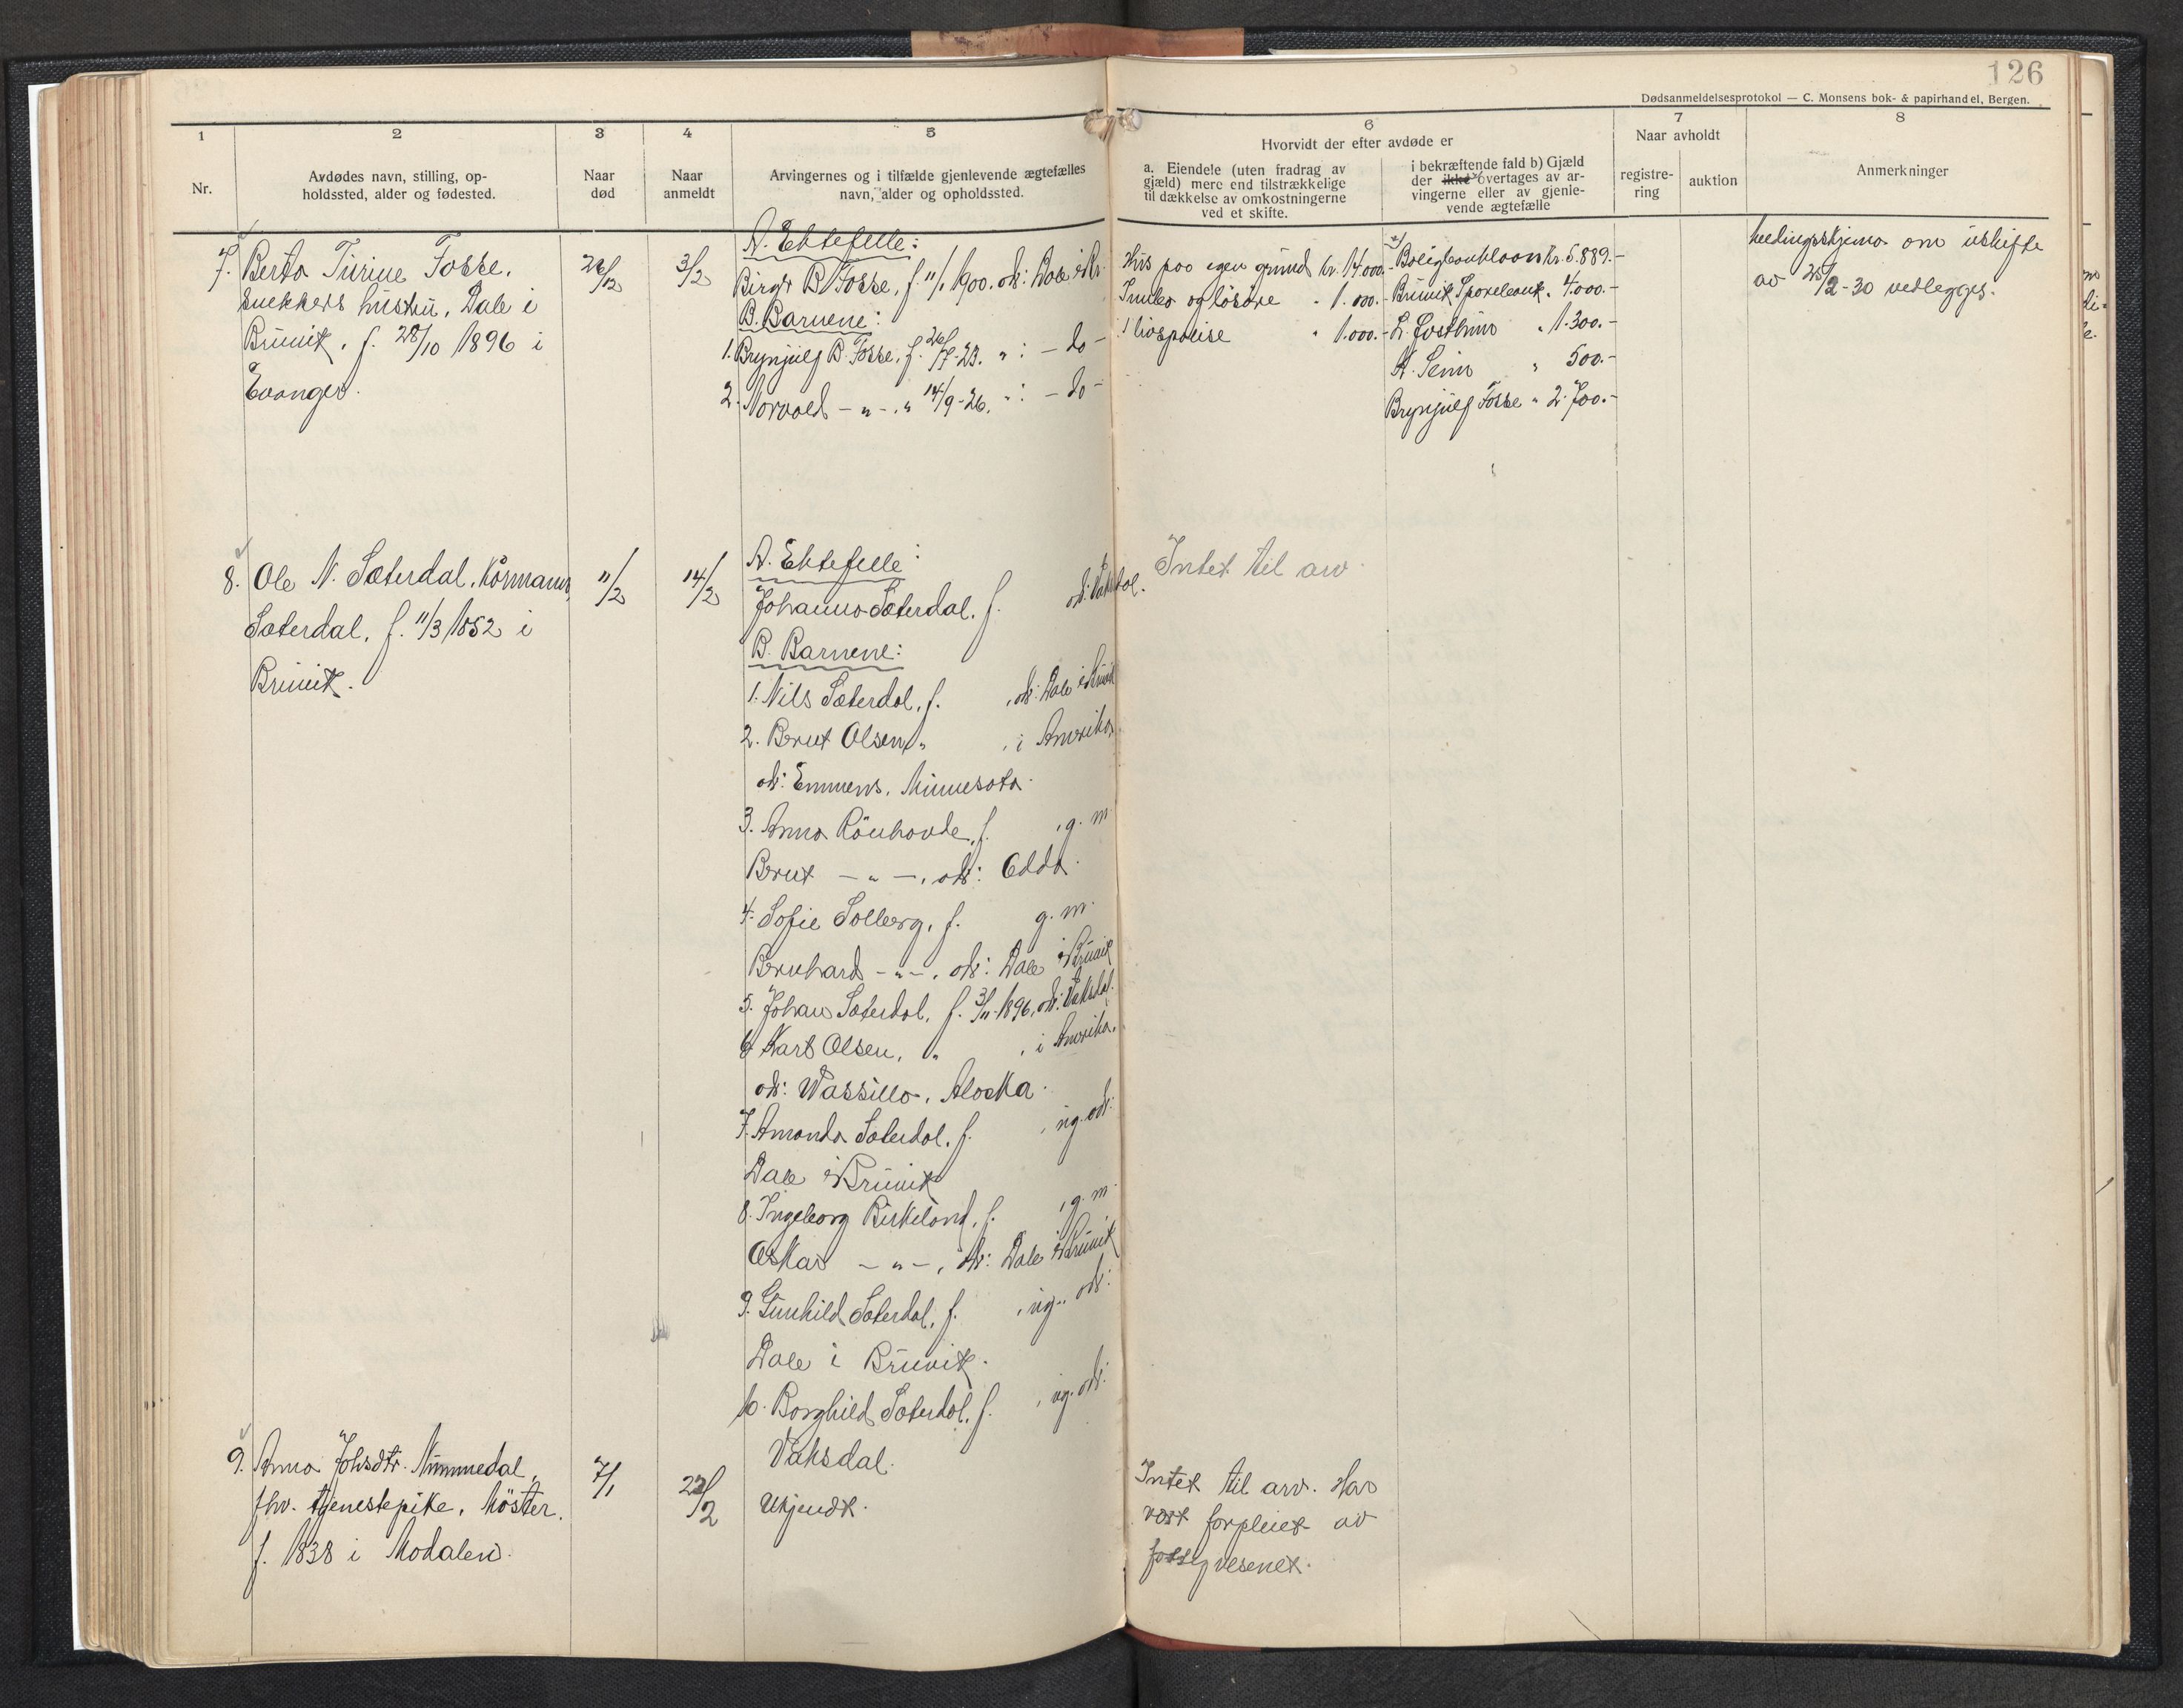 126
Dødsanmeldelsesprotokol — C. Monsens bok- & papirhandel, Bergen.
1
2
3
4
5
6
7
8
Nr.
Avdødes navn, stilling, op-
holdssted, alder og fødested.
Naar
død
Naar
anmeldt
Arvingernes og i tilfælde gjenlevende ægtefælles
navn, alder og opholdssted.
Hvorvidt der efter avdøde er
a. Eiendele (uten fradrag av
gjæld) mere end tilstrækkelige
til dækkelse av omkostningerne
ved et skifte.
i bekræftende fald b) Gjæld
der ikke overtages av ar-
vingerne eller av gjenle-
vende ægtefælle
Naar avholdt
registre-
ring
auktion
Anmerkninger
7. Berta Turine Fosse,
snekkers hustru, Dale i
Bruvik, f. 28/10 1896 i
Evanger.
26/12
3/2
A. Ektefelle:
Birger B. Fosse, f. 11/1 1900, ok: Dale i Br.
B. Barnene:
1. Brynjulf B. Fosse, f. 26/7-23. " : - do -
2. Norvald - " - . " 14/9-26. " : - do -
Hus paa egen grund kr. 14.000.-
Innbo og løsøre " 1.000.-
1 livspolise " 1.000.-
Boligbanklaan kr. 5.889.-
Bruvik Sparebank " 4.000.-
L. Josthun " 1.300.-
K. Seim " 500.-
Brynjulf Fosse " 2.700.-
om uskifte
av 25/2-30 vedlegges.
8. Ole N. Sæterdal, Kårmann,
Sæterdal, f. 11/3 1852 i
Bruvik.
11/2
14/2
A. Ektefelle:
Johanna Sæterdal, f. ok: Vaksdal.
B. Barnene:
1. Nils Sæterdal, f. , ok: Dale i Bruvik
2. Bernt Olsen, " , i Amerika,
ok: Emmens, Minnesota.
3. Anna Rönhovde, f. , g. m.
Bernt - " - , ok: Odda.
4. Sofie Solberg, f. g. m.
Bernhard - " - , ok: Dale i Bruvik
5. Johan Sæterdal, f. 3/11-1896, ok: Vaksdal.
6. Karl Olsen, " , i Amerika,
ok: Wassillo, Alaska.
7. Amanda Sæterdal, f. , ug. ok:
Dale i Bruvik
8. Ingeborg Birkeland, f. , g. m.
Oskar - " - , ok: Dale i Bruvik
9. Gunhild Sæterdal, f. , ug., ok:
Dale i Bruvik.
10. Borghild Sæterdal, f. , ug. ok:
Vaksdal.
Intet til arv.
9. Anna Johsdtr. Nummedal,
fhv. tjenestepike, Möster,
f. 1838 i Modalen.
7/1
22/2
Ukjendt.
Intet til arv. Har
vært forpleiet av
fattigvesenet.